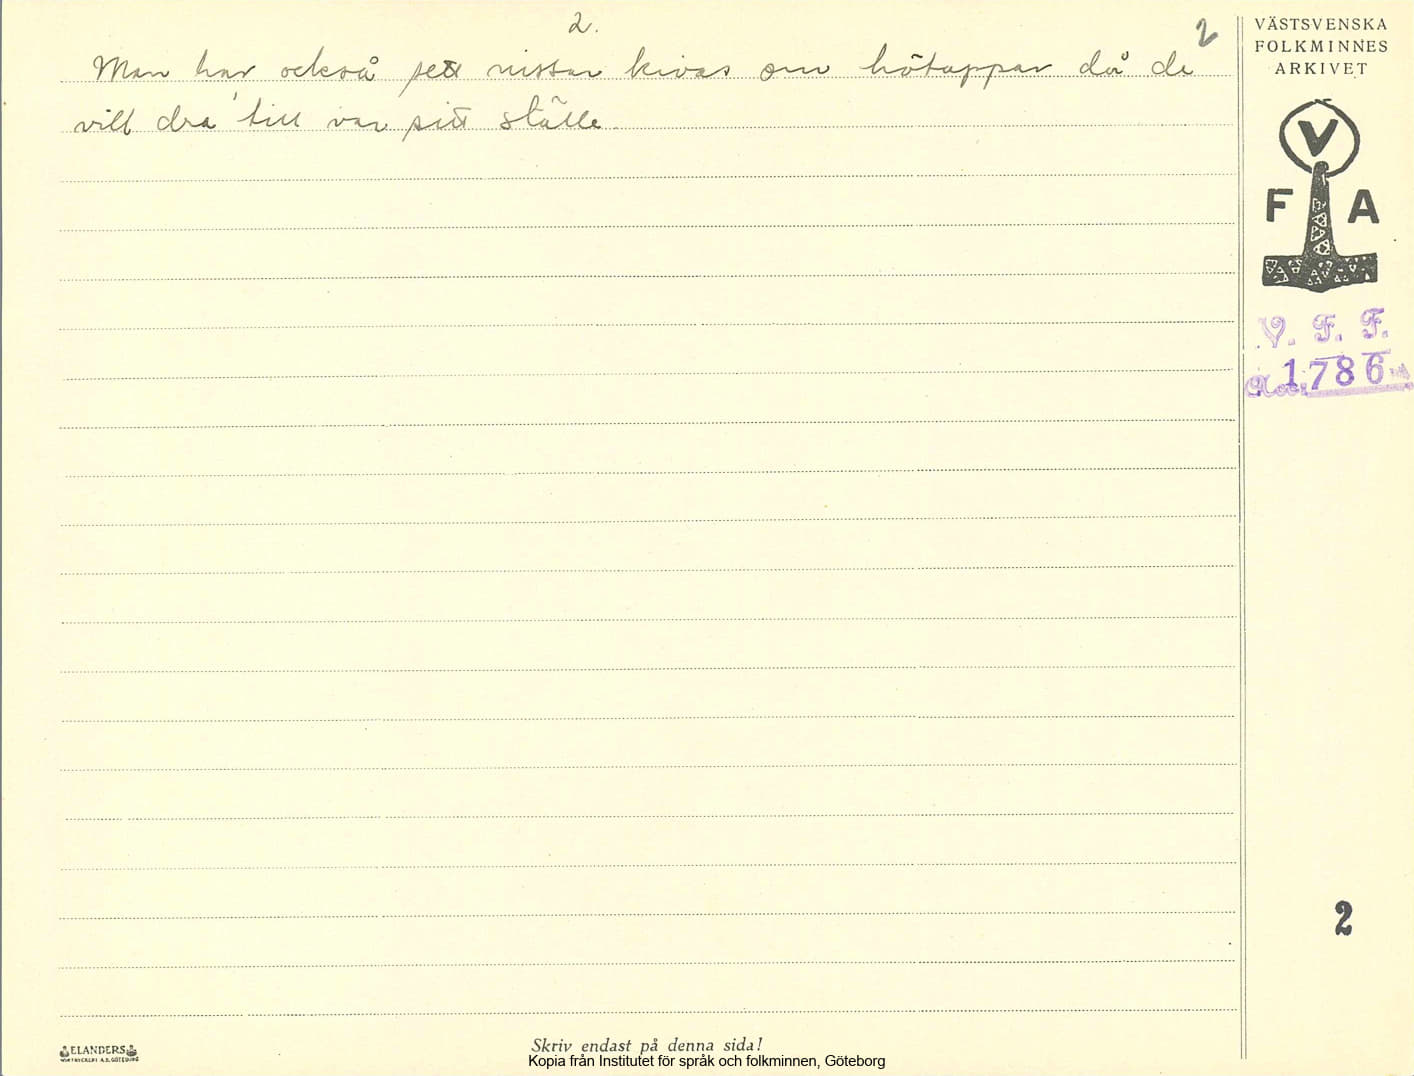 2.
2
Man har också sett nissar kivas om hötappar då de
vill dra till var sitt ställe.
VÄSTSVENSKA
FOLKMINNES
ARKIVET
V
F A
V. F. F.
Acc. 1786
2
ELANDERS
Skriv endast på denna sida!
Kopia från Institutet för språk och folkminnen, Göteborg